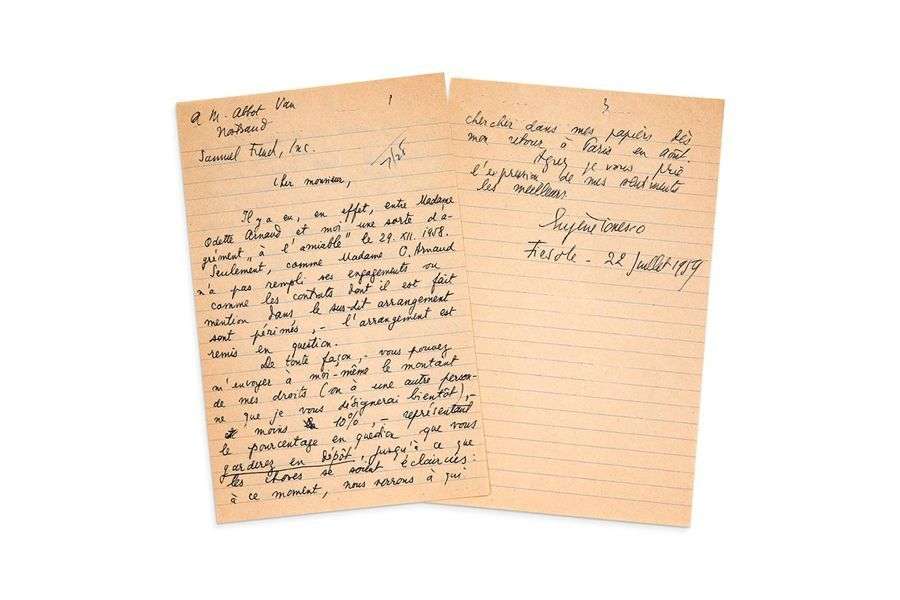 A M. Abbot Van
Nostrand
1
Samuel French, Inc.
7/28
Cher monsieur,
Il y a eu, en effet, entre Madame
Odette Arnaud et moi une sorte d'a-
grément "à l'amiable" le 29. XII. 1958.
Seulement, comme Madame O. Arnaud
n'a pas rempli ses engagements ou
comme les contrats dont il est fait
mention dans le sus-dit arrangement
sont périmés, - l'arrangement est
remis en question.
De toute façon, - vous pouvez
m'envoyer à moi-même le montant
de mes droits (ou à une autre person-
ne que je vous désignerai bientôt), -
moins 10%, - représentant
le pourcentage en question que vous
garderez en dépôt, jusqu'à ce que
les choses se soient éclaircies:
à ce moment, nous verrons à qui
3
chercher dans mes papiers dès
mon retour à Paris en août.
Agrez je vous prie
l'expression de mes sentiments
les meilleurs
Eugène Ionesco
Fiesole - 22 Juillet 1959